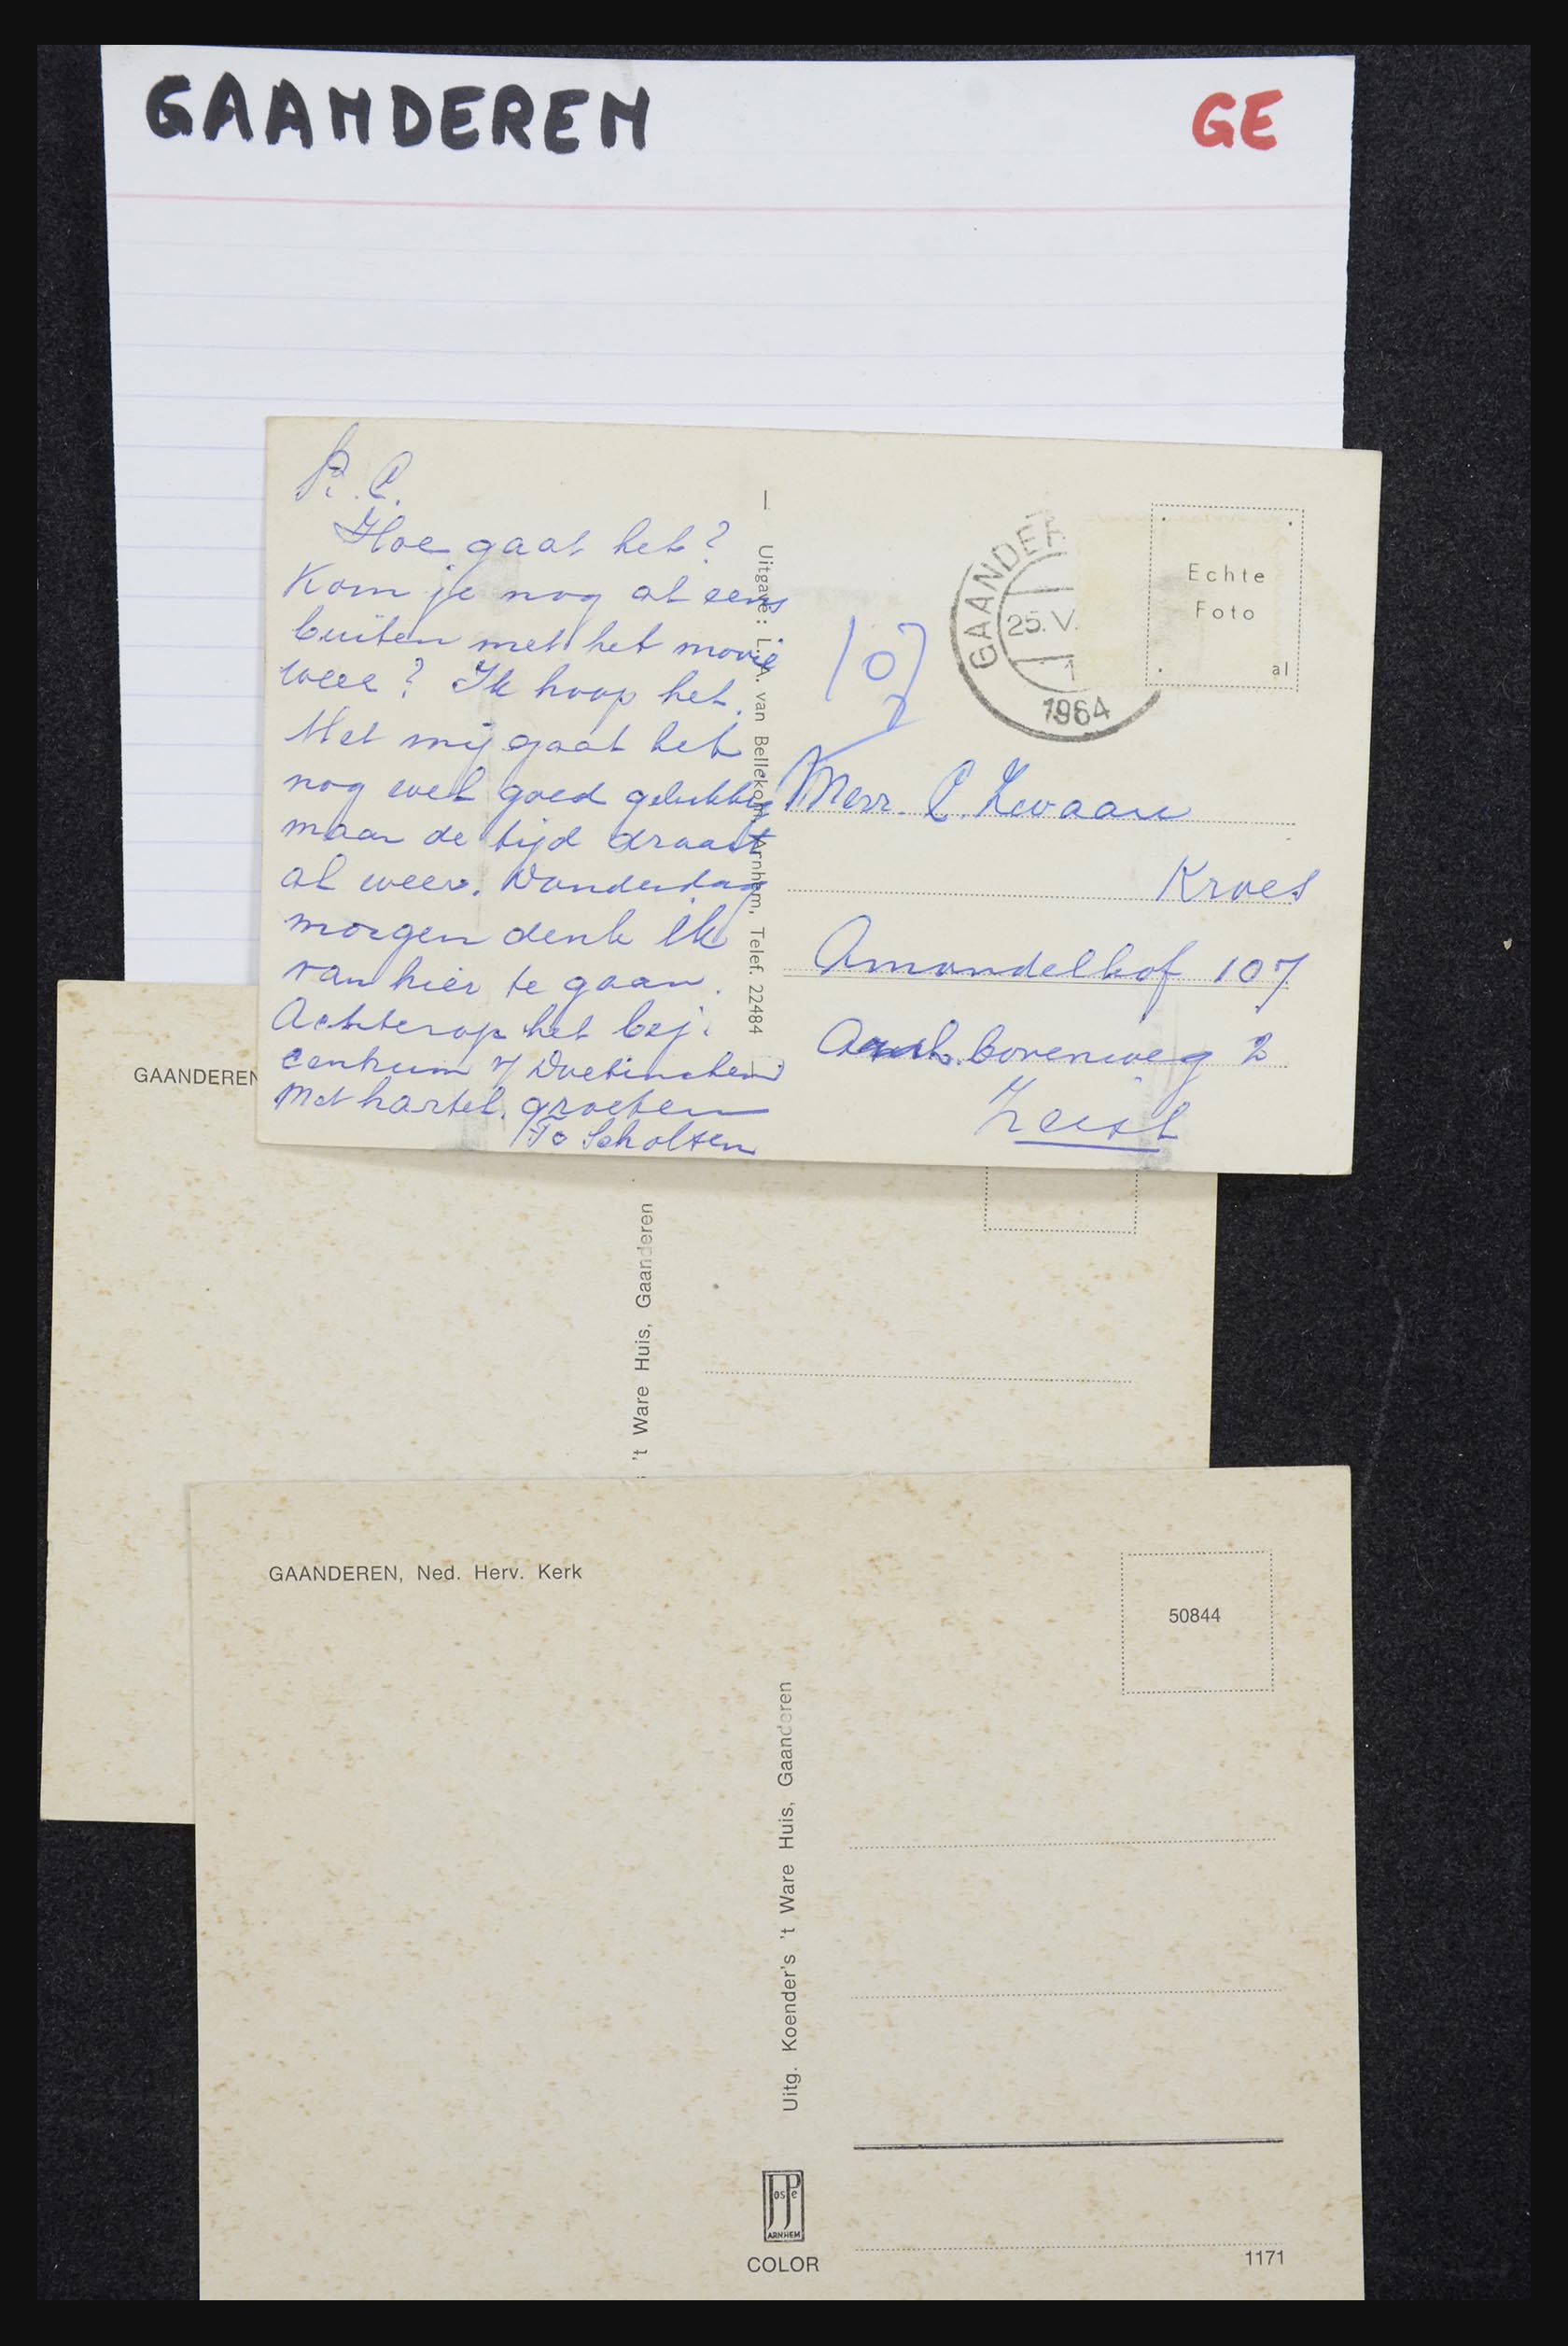 GAANDEREN GE
B. C.
Hoe gaat het?
Kom je nog al eens
buiten met het mooie
weer? Ik hoop het.
Met mij gaat het
nog wel goed gelukkig
maar de tijd draait
al weer. Donderdag
morgen denk ik
van hier te gaan.
Achterop het bej.
centrum v/ Doetinchem
Met hartel. groeten
To Scholten
— Uitgave: L. A. van Bellekom, Arnhem, Telef. 22484 —
GAANDER
25.V.
1
1964
Echte
Foto
al
107
Mevr. C. Zwaan
Kroes
Amandelhof 107
bovenweg 2
Zeist
GAANDEREN
't Ware Huis, Gaanderen
GAANDEREN, Ned. Herv. Kerk
50844
Uitg. Koender's 't Ware Huis, Gaanderen
JosPe
ARNHEM
COLOR
1171